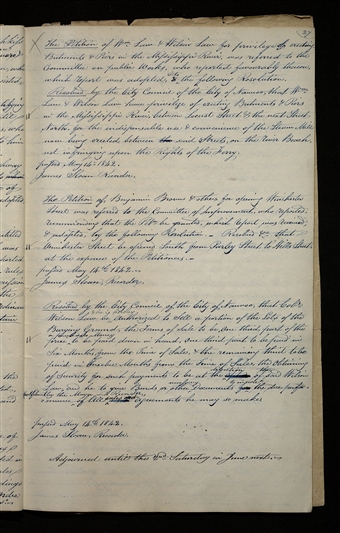 37
The Petition of Wm Law & Wilson Law for privilege of erecting
Butments & Piers in the Mississippi River, was referred to the
Committee on public Works, who reported favourably thereon,
which report was adopted, & the following Resolution.
Resolved by the City Council of the City of Nauvoo, that Wm
Law & Wilson Law have privilege of erecting Butments & Piers
in the Mississippi River, between Locust Street & the next Street
North, for the indispensable use & convenience of the Steam Mill
now being erected between said Streets, on the River Bank,
not infringing upon the Rights of the Ferry.
passed May 14th 1842.
James Sloan Recorder.
The Petition of Benjamin Brown & others for opening Winchester
Street was referred to the Committee of Improvement, who reported,
recommending that the Ptn be granted, which report was received,
& adopted, by the following Resolution. Resolved &c. that
Winchester Street be opened South from Parley Street to Wells Street
at the expence of the Petitioners.
passed May 14th 1842.
James Sloan, Recorder.
Resolved by the City Council of the City of Nauvoo, that Coll.
Wilson Law be authorized to Sell a portion of the Lots of the
Burying Ground, the Terms of Sale to be, One third part of the
price to be paid down in hand, One third part to be paid in
Six Months from the time of Sales, & the remaining third to be
paid in twelve Months from the time of Sales, the obtaining
of Security for such payments to be at the of said Wilson
Law, and he to give Bonds or other Documents
agreements he may so make
Passed May 14th 1842.
James Sloan, Recorder.
Adjourned until the 2nd Saturday in June next.